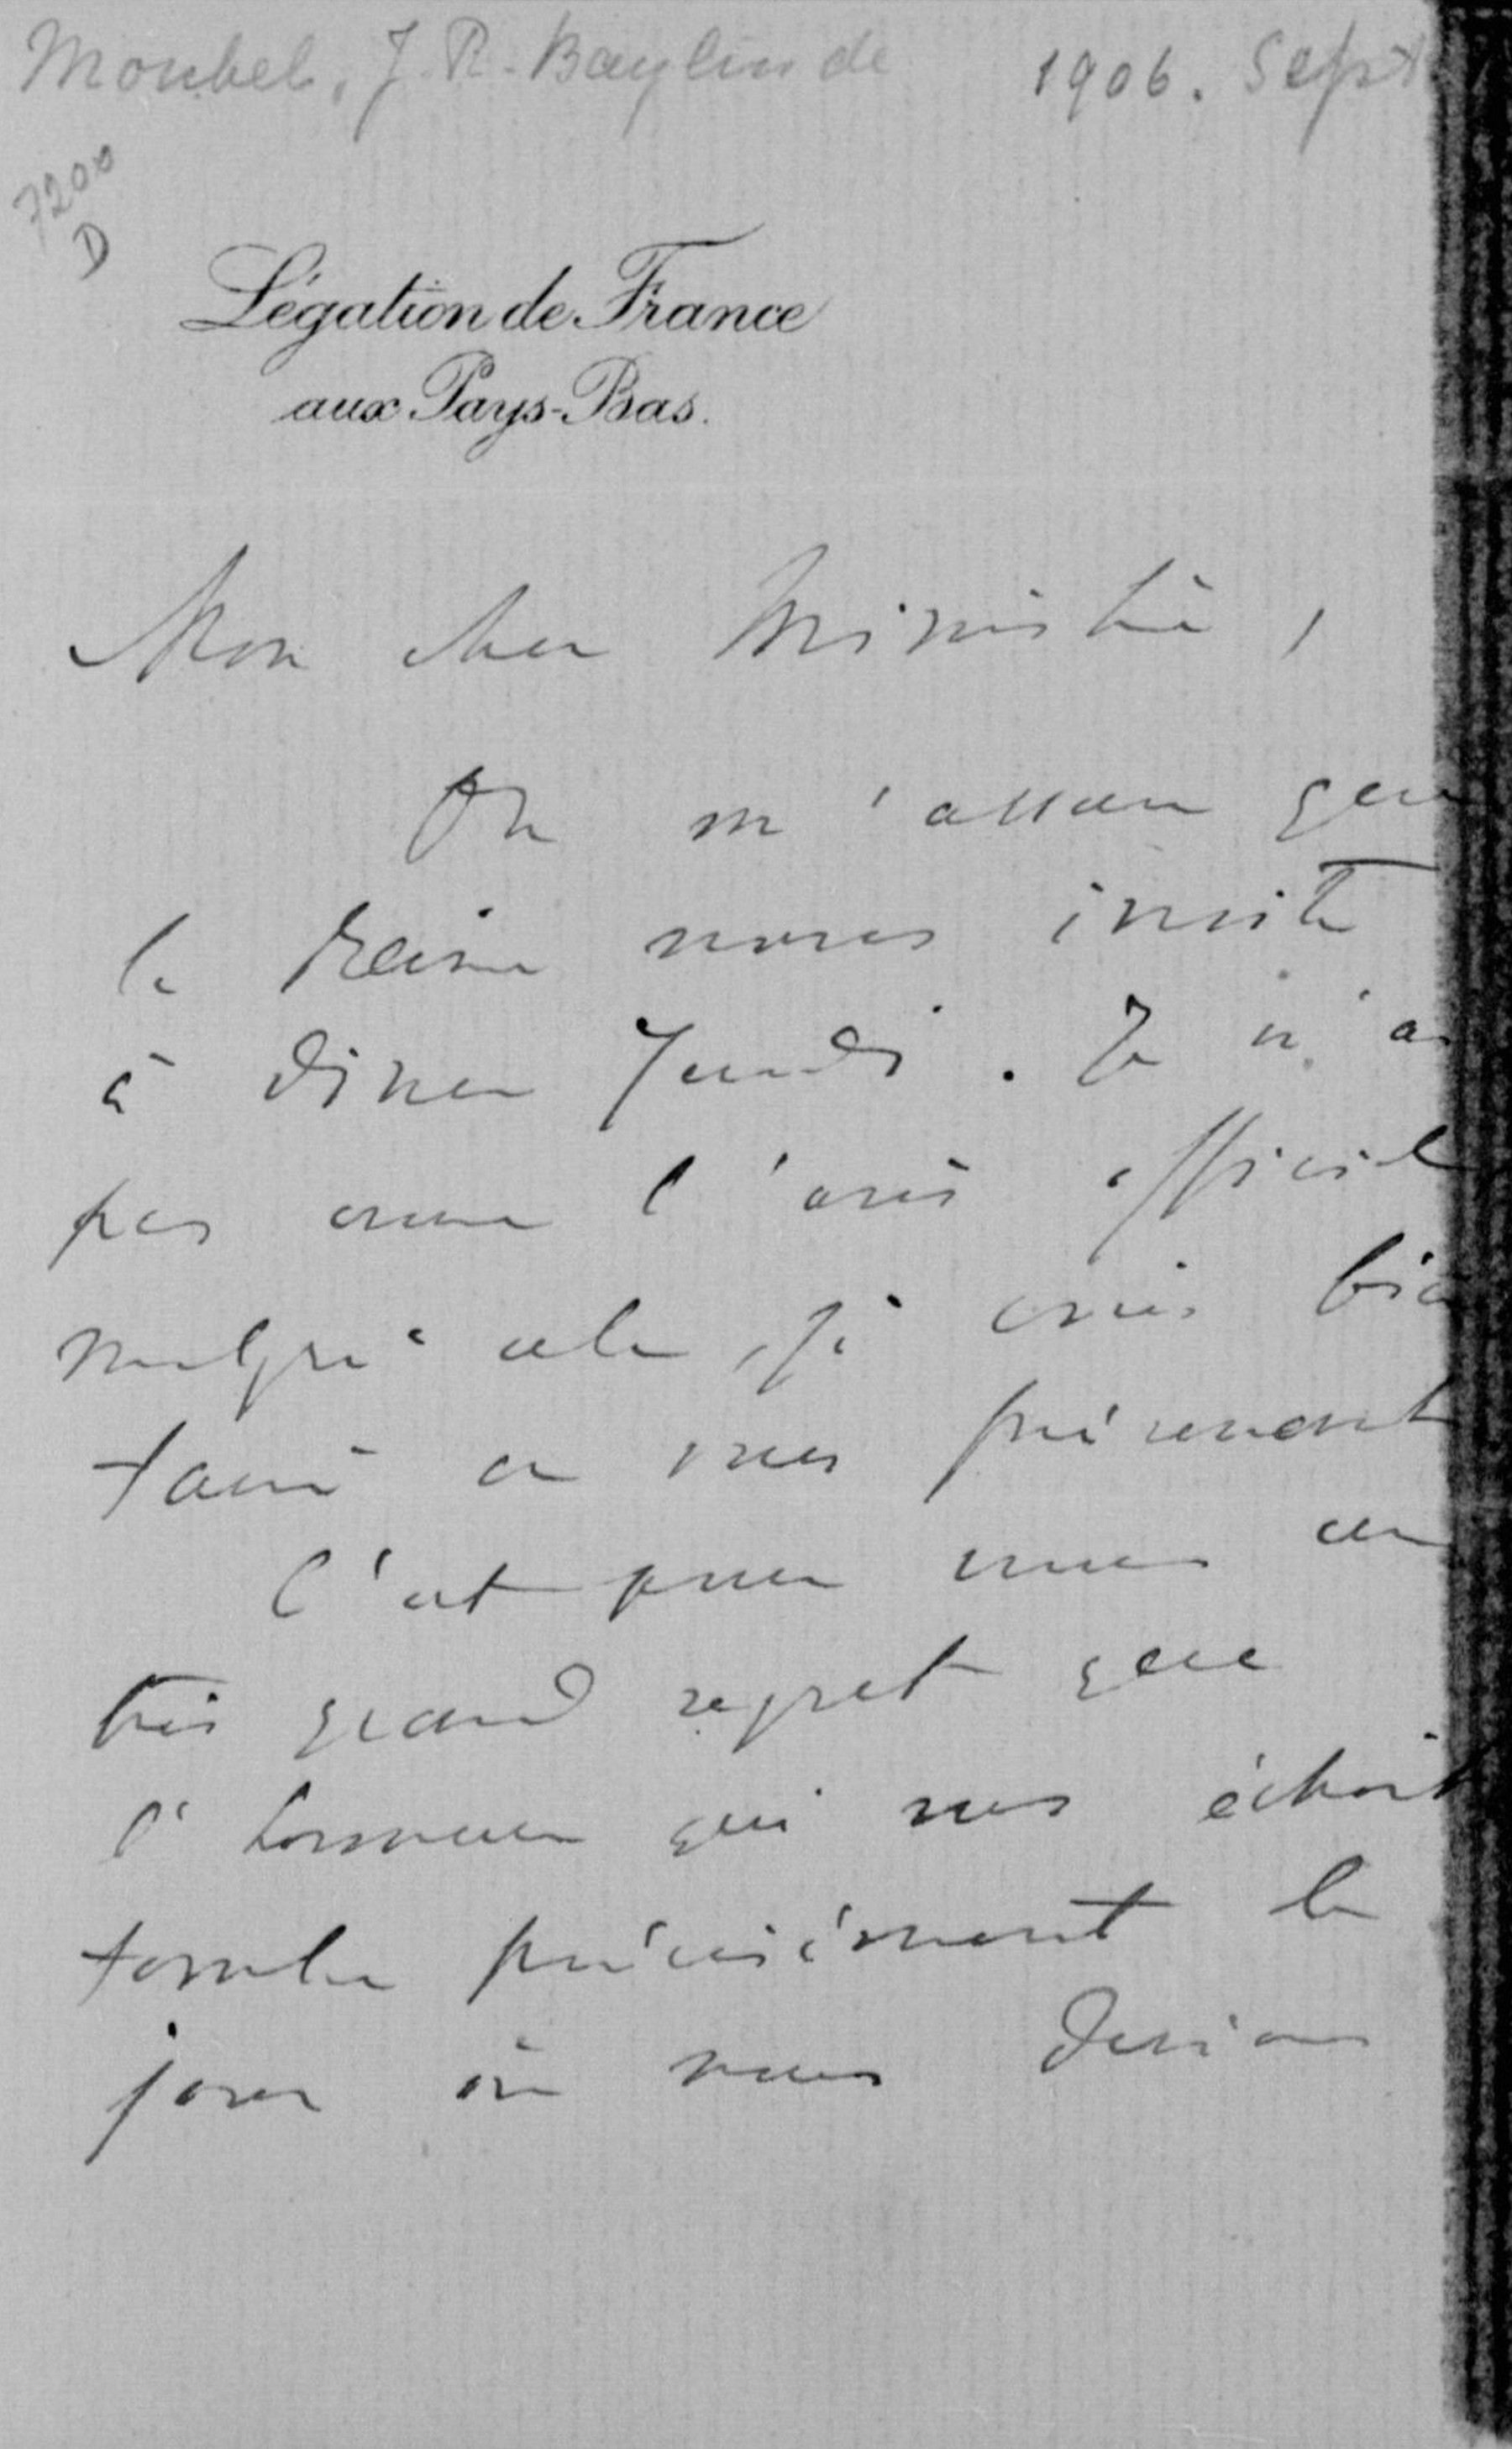 Monbel, J. R. Baylin de 1906. Sept
7200
D
Légation de France
aux Pays-Bas.
Mon cher Ministre,
On m'assure que
la Reine nous invite
à diner Jeudi. Je n'ai
pas encore l'avis officiel
malgré cela, je crois bien
faire en vous prévenant
C'est pour nous un
très grand regret que
l'honneur qui nous échoit
tombe précisément le
jour où nous devions